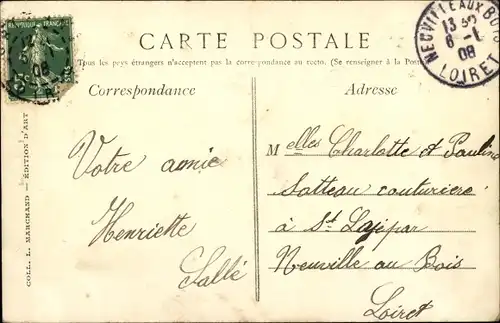 RÉPUBLIQUE FRANÇAISE
CARTE POSTALE
Tous les pays étrangers n'acceptent pas la correspondance au recto. (Se renseigner à la Poste
Correspondance
Adresse
NEUVILLE AUX BOIS
13 30
6 - 1
08
LOIRET
Votre amie
Henriette
Sallé
Melles Charlotte et Pauline
Sotteau couturiere
à St
Neuville au Bois
Loiret
COLL. L. MARCHAND — ÉDITION D'ART